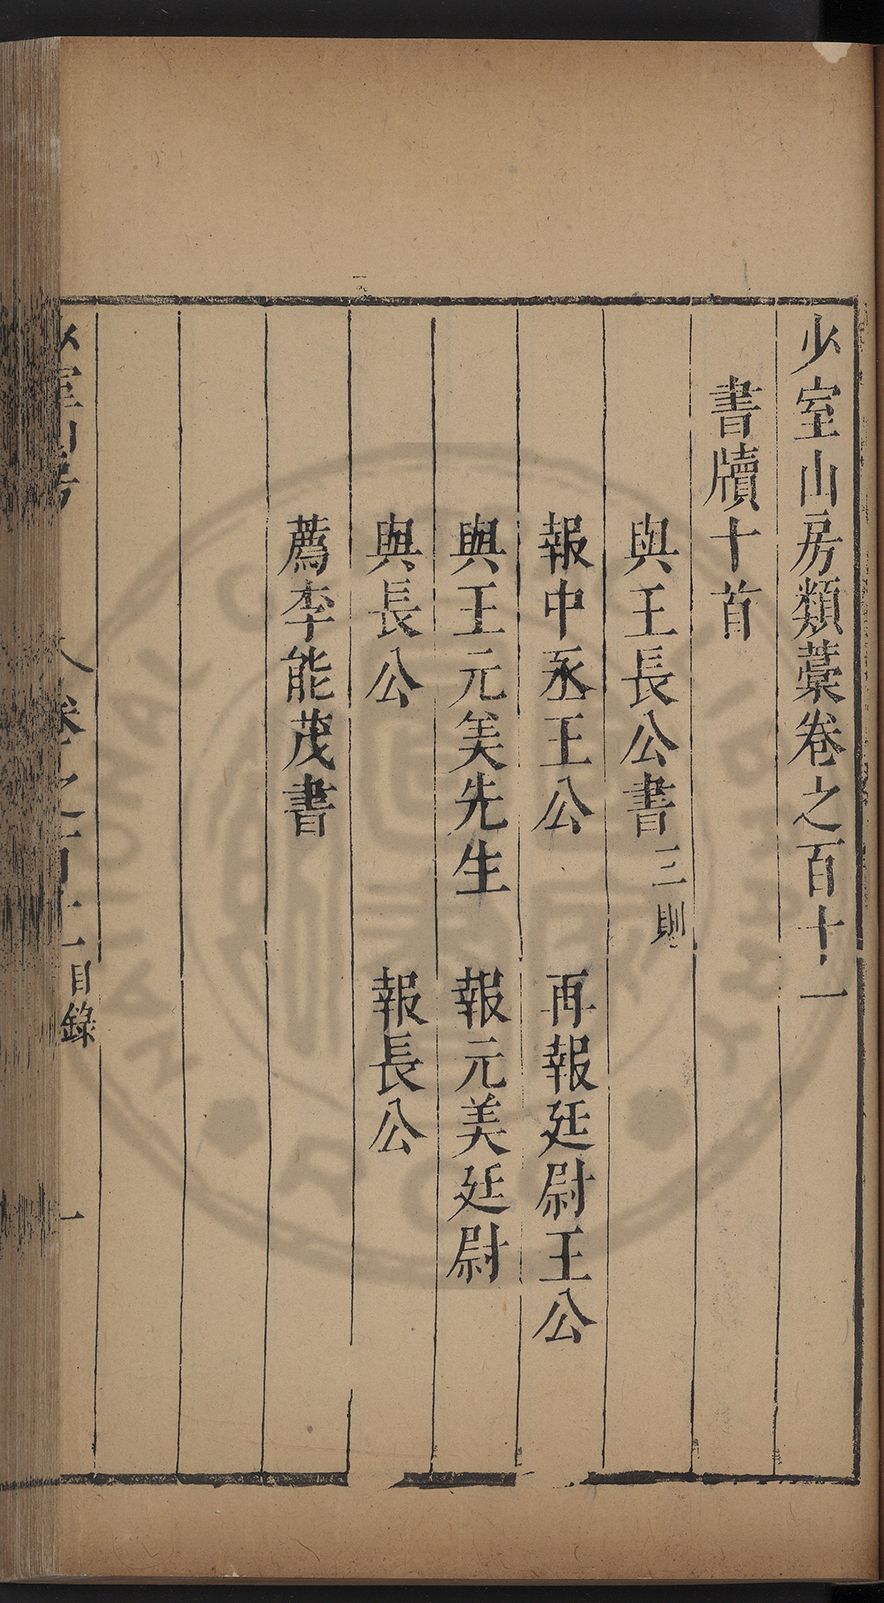 少室山房類藁卷之百十一
書牘十首
與王長公書三則
報中丞王公　再報廷尉王公
與王元美先生　報元美廷尉
與長公　報長公
薦李能茂書
少室山房　卷之百十一目錄　一